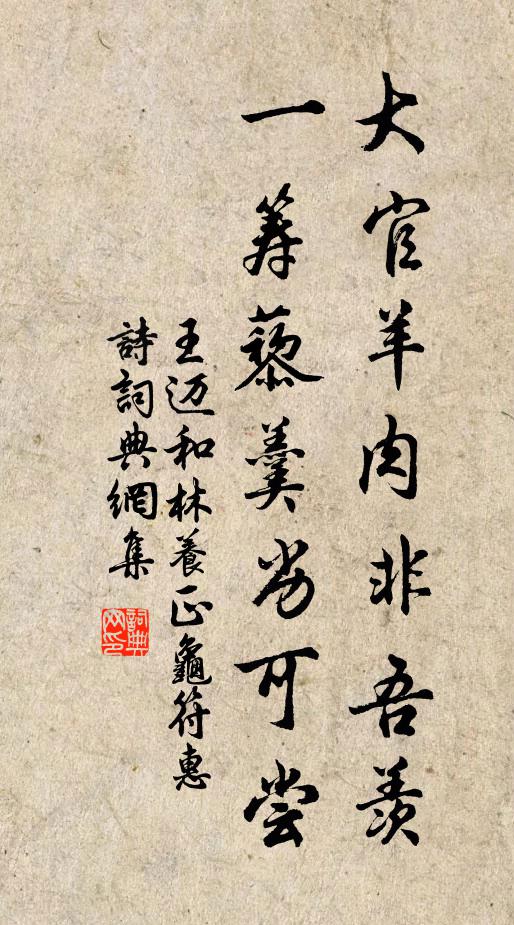 大官羊肉非吾羨
一筹藜羹劣可尝
王迈和林養正龜符惠
詩詞典網集
詞典网印